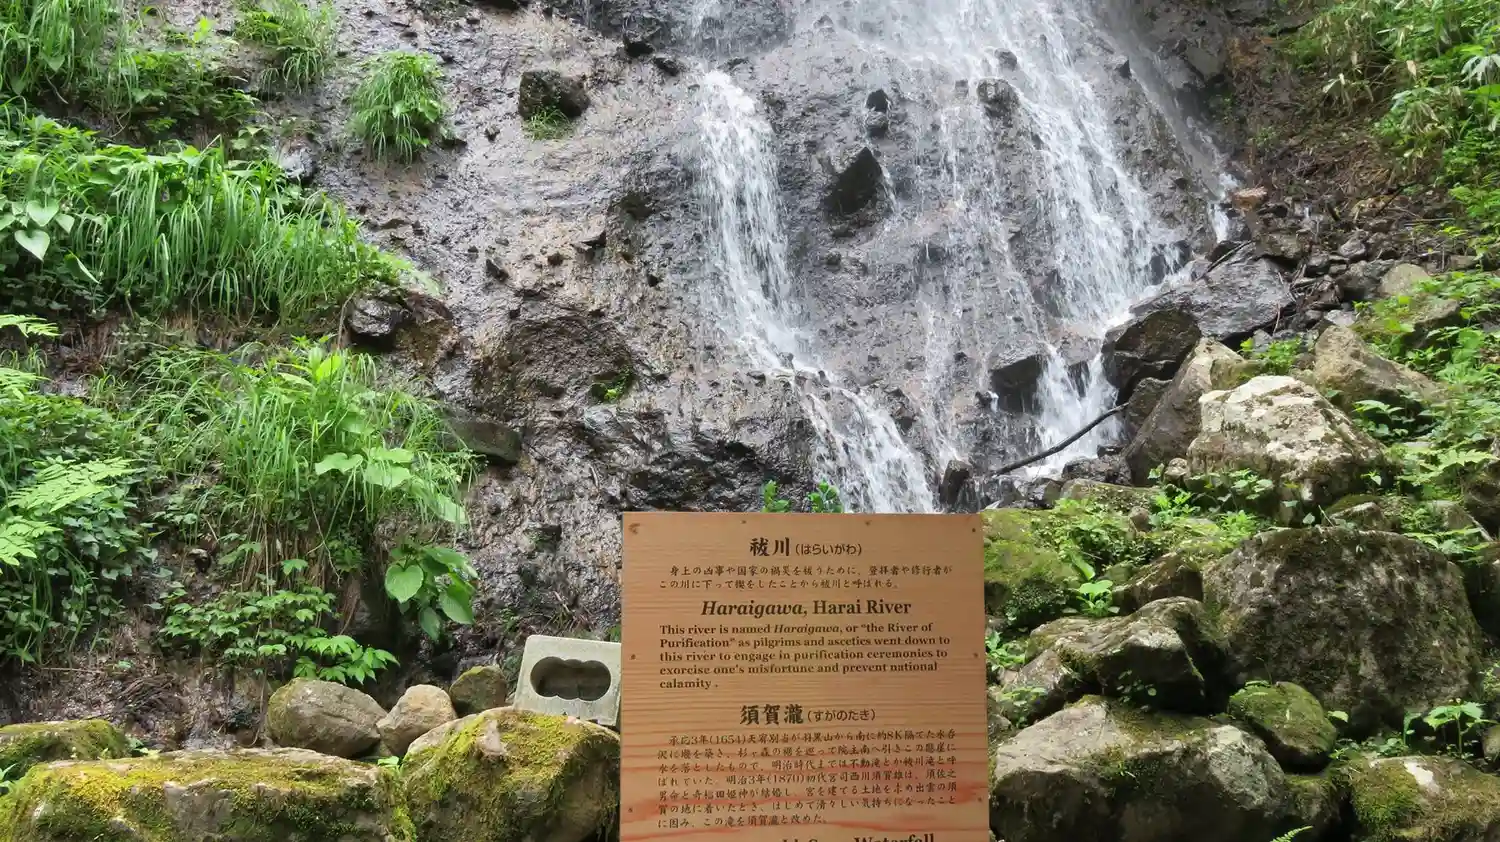 祓川(はらいがわ)
身上の凶事や国家の禍災を祓うために、登拝者や修行者が
この川に下って禊をしたことから祓川と呼ばれる。
Haraigawa, Harai River
This river is named Haraigawa, or "the River of
Purification" as pilgrims and ascetics went down to
this river to engage in purification ceremonies to
exorcise one's misfortune and prevent national
calamity .
須賀瀧(すがのたき)
承応3年(1654)天宥別当が羽黒山から南に約8K隔てた水呑
沢に堰を築き、杉ヶ森の樹を巡って院主南へ引きこの懸崖に
水を落としたもので、明治時代までは不動滝とか祓川滝と呼
ばれていた。明治3年(1870)初代宮司西川須賀雄は、須佐之
男命と奇稲田姫神が結婚し、宮を建てる土地を求め出雲の須
賀の地に着いたとき、はじめて清々しい気持ちになったこと
に因み、この滝を須賀瀧と改めた。
Waterfall